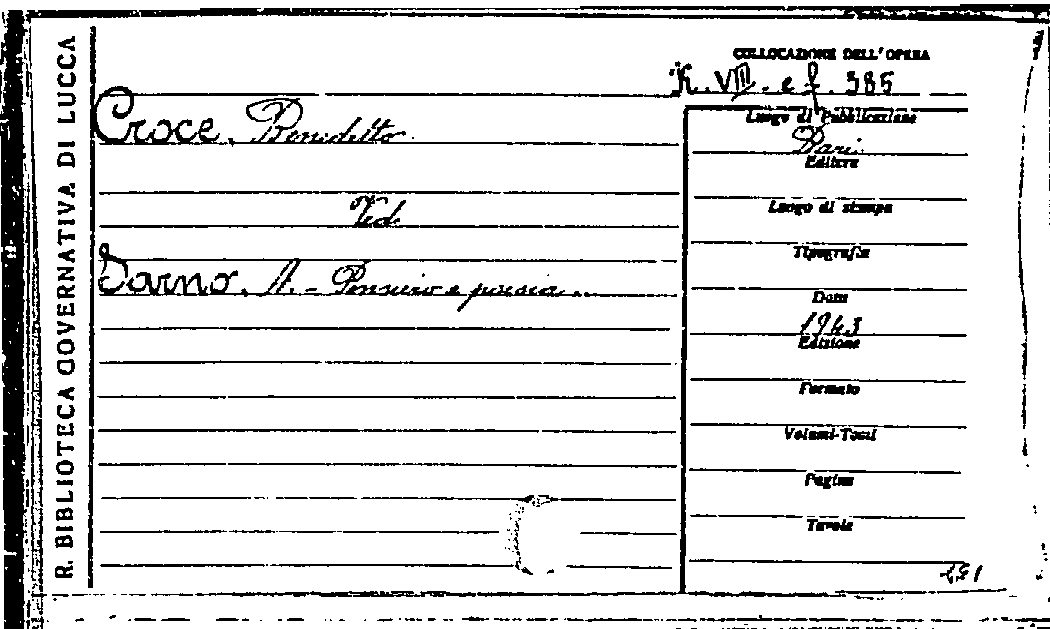 R. BIBLIOTECA GOVERNATIVA DI LUCCA
COLLOCAZIONE DELL'OPERA
K. VIII. e f. 385
Croce, Benedetto
Ved.
Sarno, A. - Pensiero e poesia.
Luogo di Pubblicazione
Bari
Editore
Luogo di stampa
Tipografia
Data
1943
Edizione
Formato
Volumi-Tomi
Pagine
Tavole